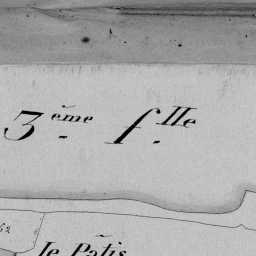 3.ème f.lle
62
le Patis